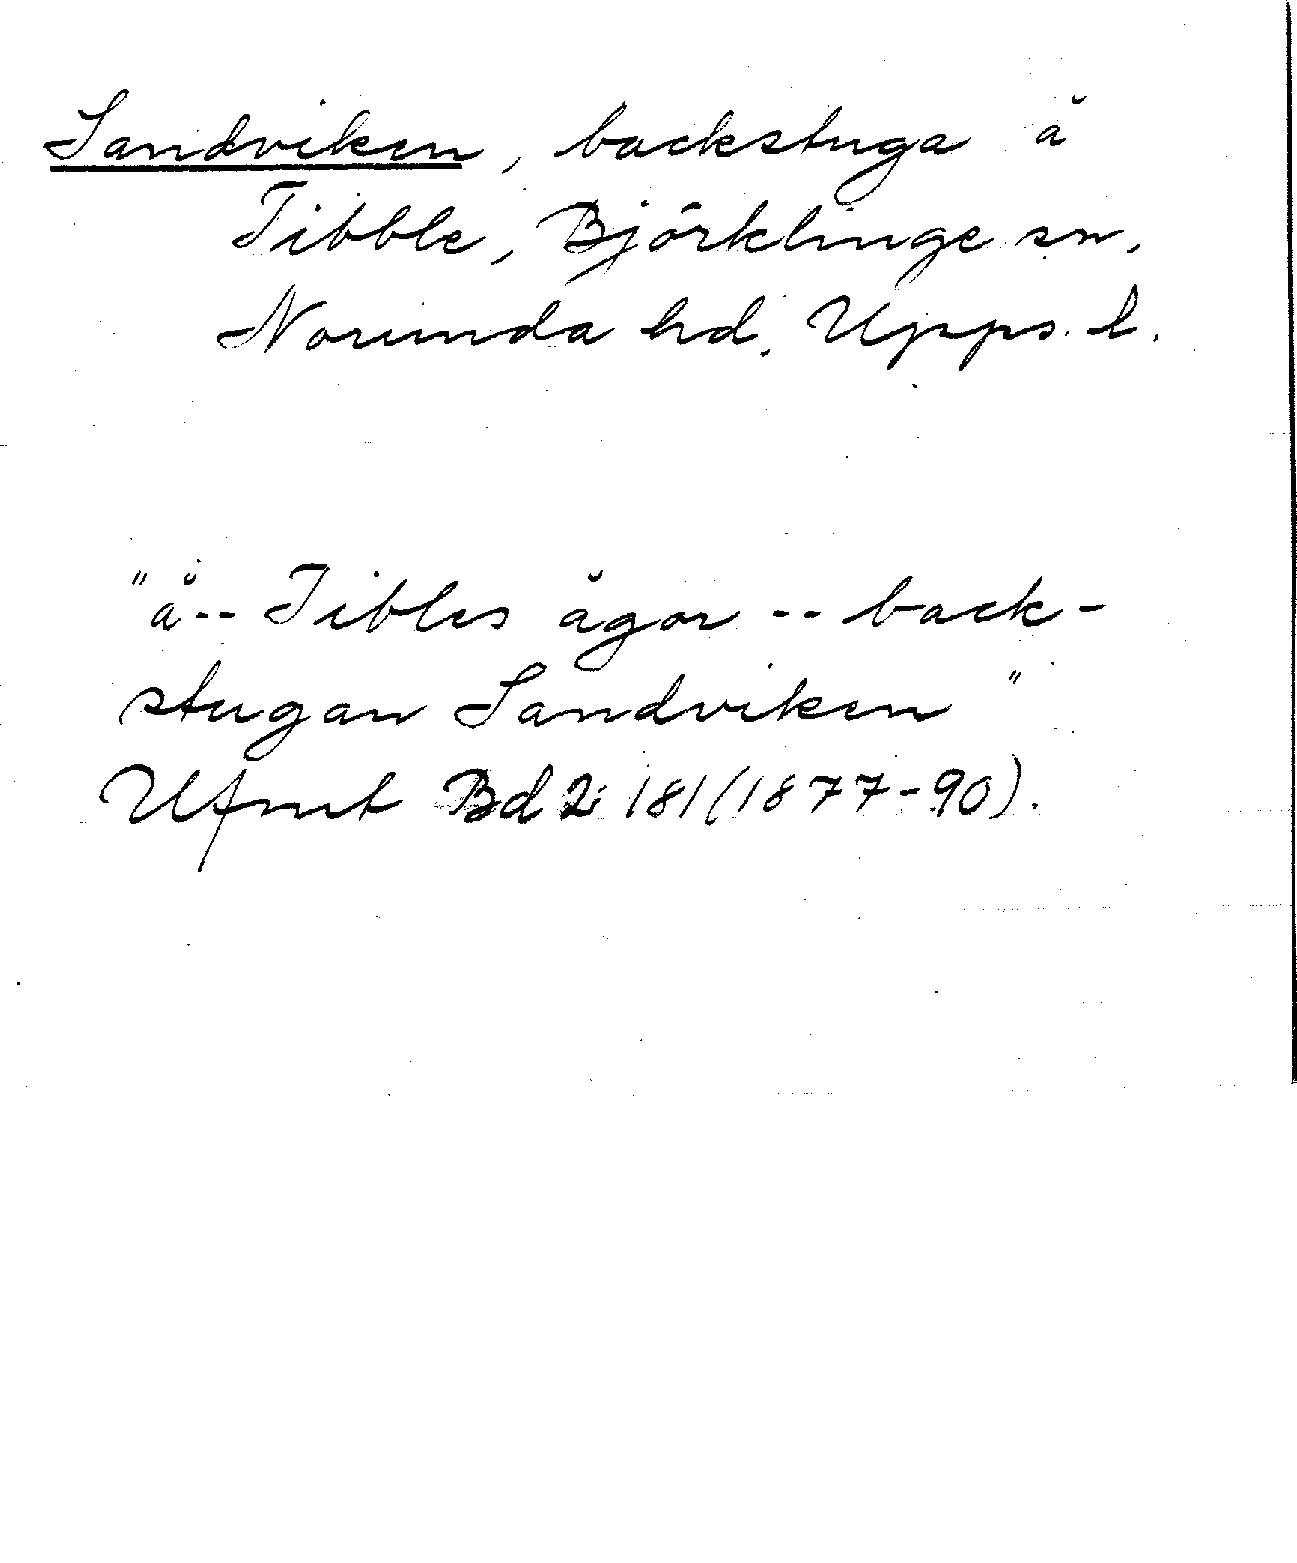 Sandviken, backstuga å
Tibble, Björklinge sn,
Norunda hd, Upps. l.
"å-- Tibles ägor -- back-
stugan Sandviken"
Ufmt Bd 2: 181 (1877-90).